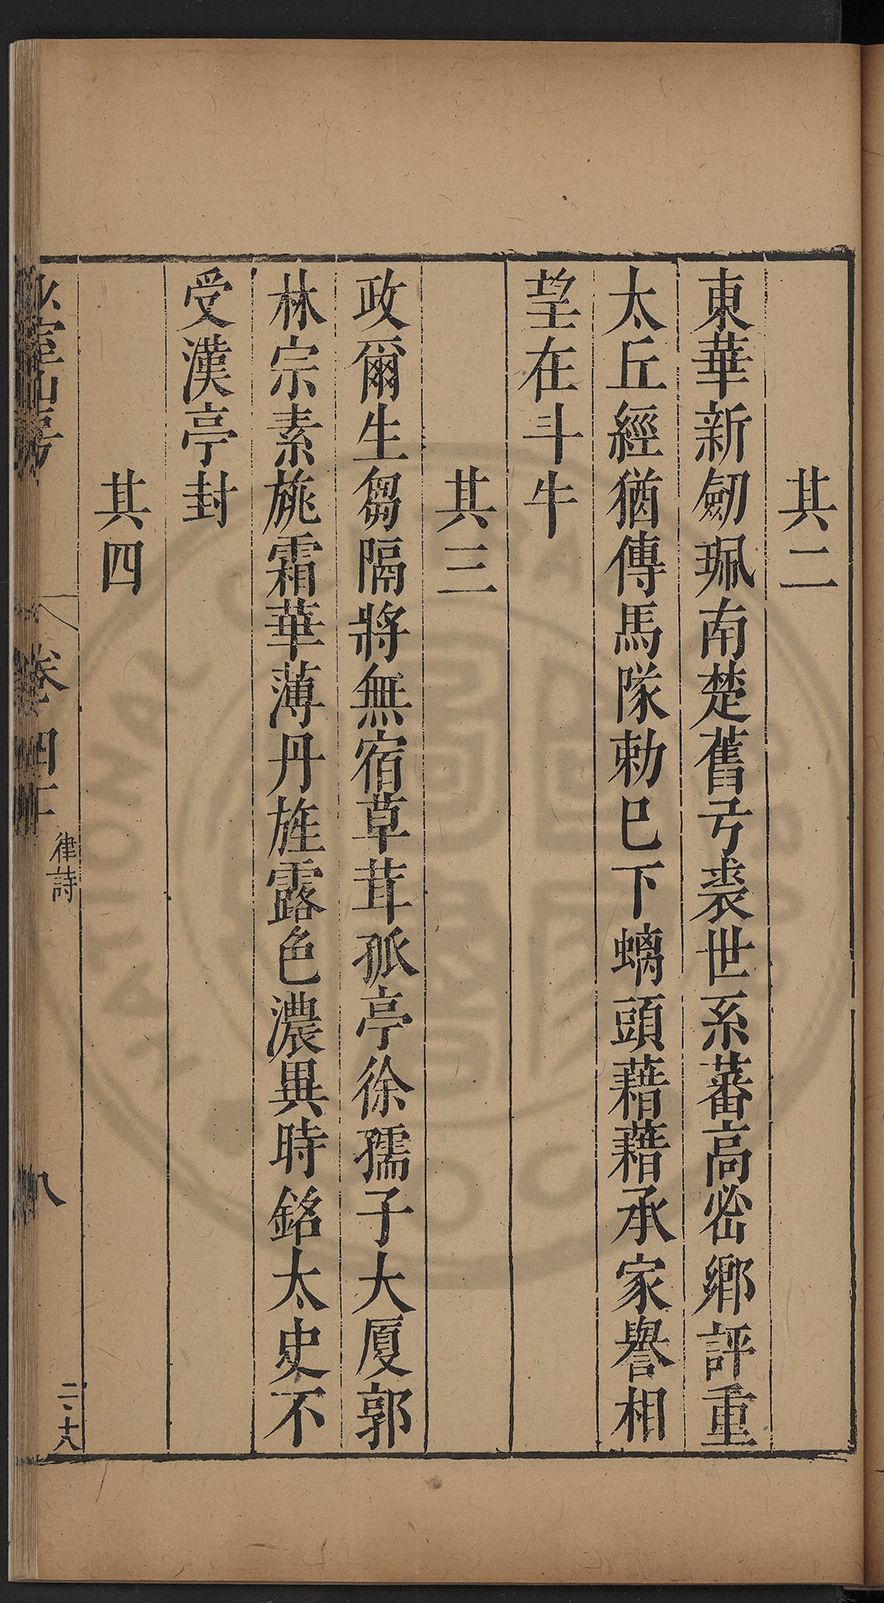 其二
東華新劒珮南楚舊弓裘世系蕃高密鄉評重
太丘經猶傳馬隊勅巳下螭頭藉藉承家譽相
望在斗牛
其三
政爾生芻隔將無宿草茸孤亭徐孺子大厦郭
林宗素旐霜華薄丹旌露色濃異時銘太史不
受漢亭封
其四
卷四
律詩
八
二十八